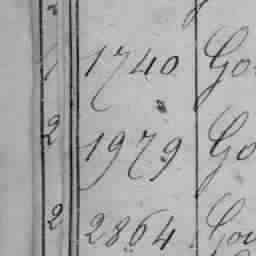 1740 Go
2 1979 Go
2 2864 Gou